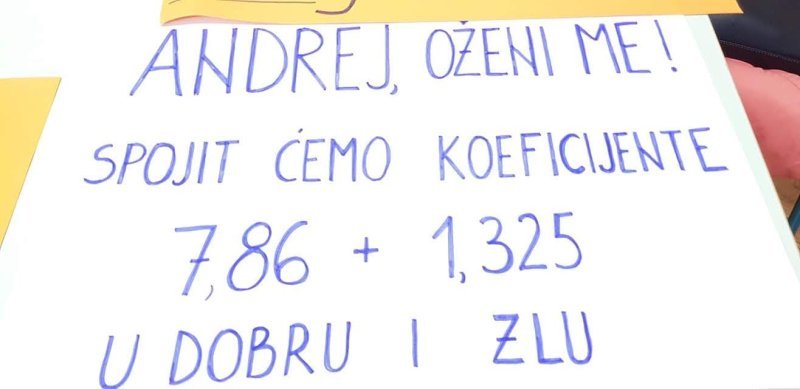 ANDREJ, OŽENI ME!
SPOJIT ĆEMO KOEFICIJENTE
7,86 + 1,325
U DOBRU I ZLU